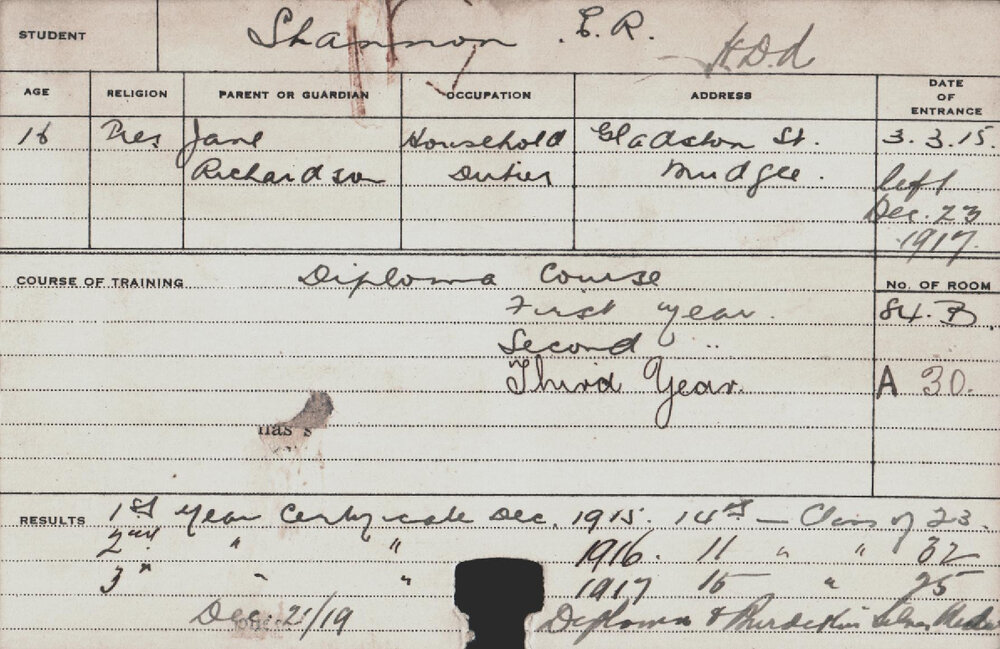 STUDENT Shannon E.R.
H.D.d
AGE RELIGION PARENT OR GUARDIAN OCCUPATION ADDRESS DATE OF ENTRANCE
16 Pres Jane Household Gladston St. 3.3.15.
Richardson Duties Mudgee. left
Dec. 23
1917.
COURSE OF TRAINING Diploma Course No. OF ROOM
First year. 84. B
Second "
Third Year. A 30.
has s
RESULTS 1st year Certificate Dec. 1915. 14th — Class of 23.
2nd " " 1916. 11 " " 32
3rd " " 1917 15 " 25
Dec. 21/19 Diploma & Burdekin Silver Medal